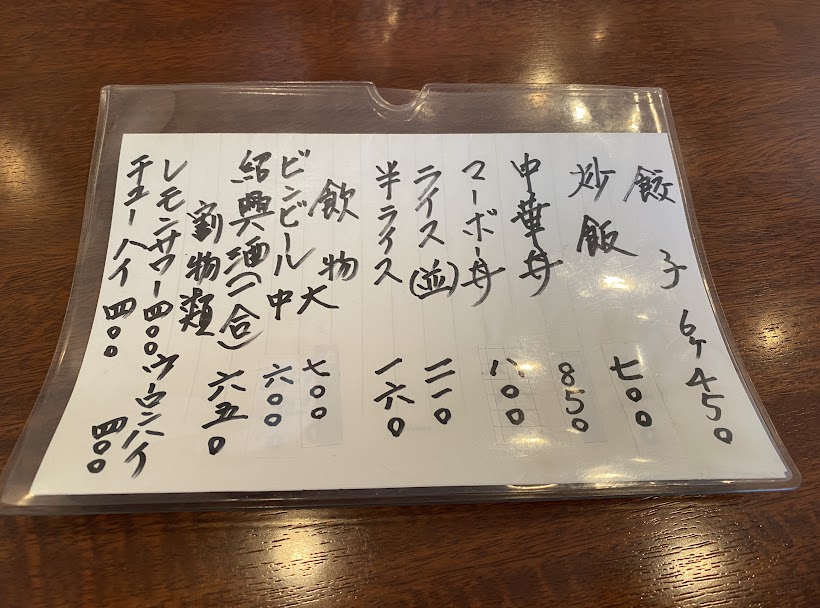 餃子 6ケ450
炒飯 七〇〇
中華丼 850
マーボー丼 八〇〇
ライス(並) 二一〇
半ライス 一六〇
飲物
ビンビール 大 七〇〇
中 六〇〇
紹興酒(一合) 六五〇
割物類
レモンサワー 四〇〇 ウーロンハイ 四〇〇
チューハイ 四〇〇